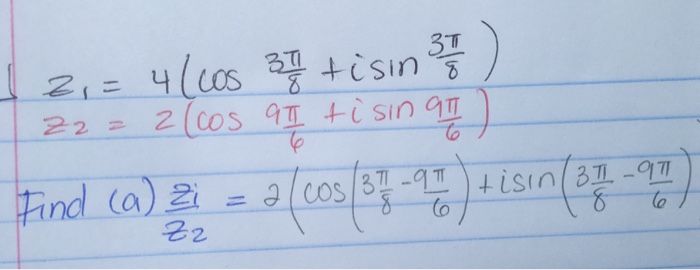 z₁ = 4(cos 3π/8 + i sin 3π/8)
z₂ = 2(cos 9π/6 + i sin 9π/6)
Find (a) z₁/z₂ = 2(cos(3π/8 - 9π/6) + i sin(3π/8 - 9π/6)